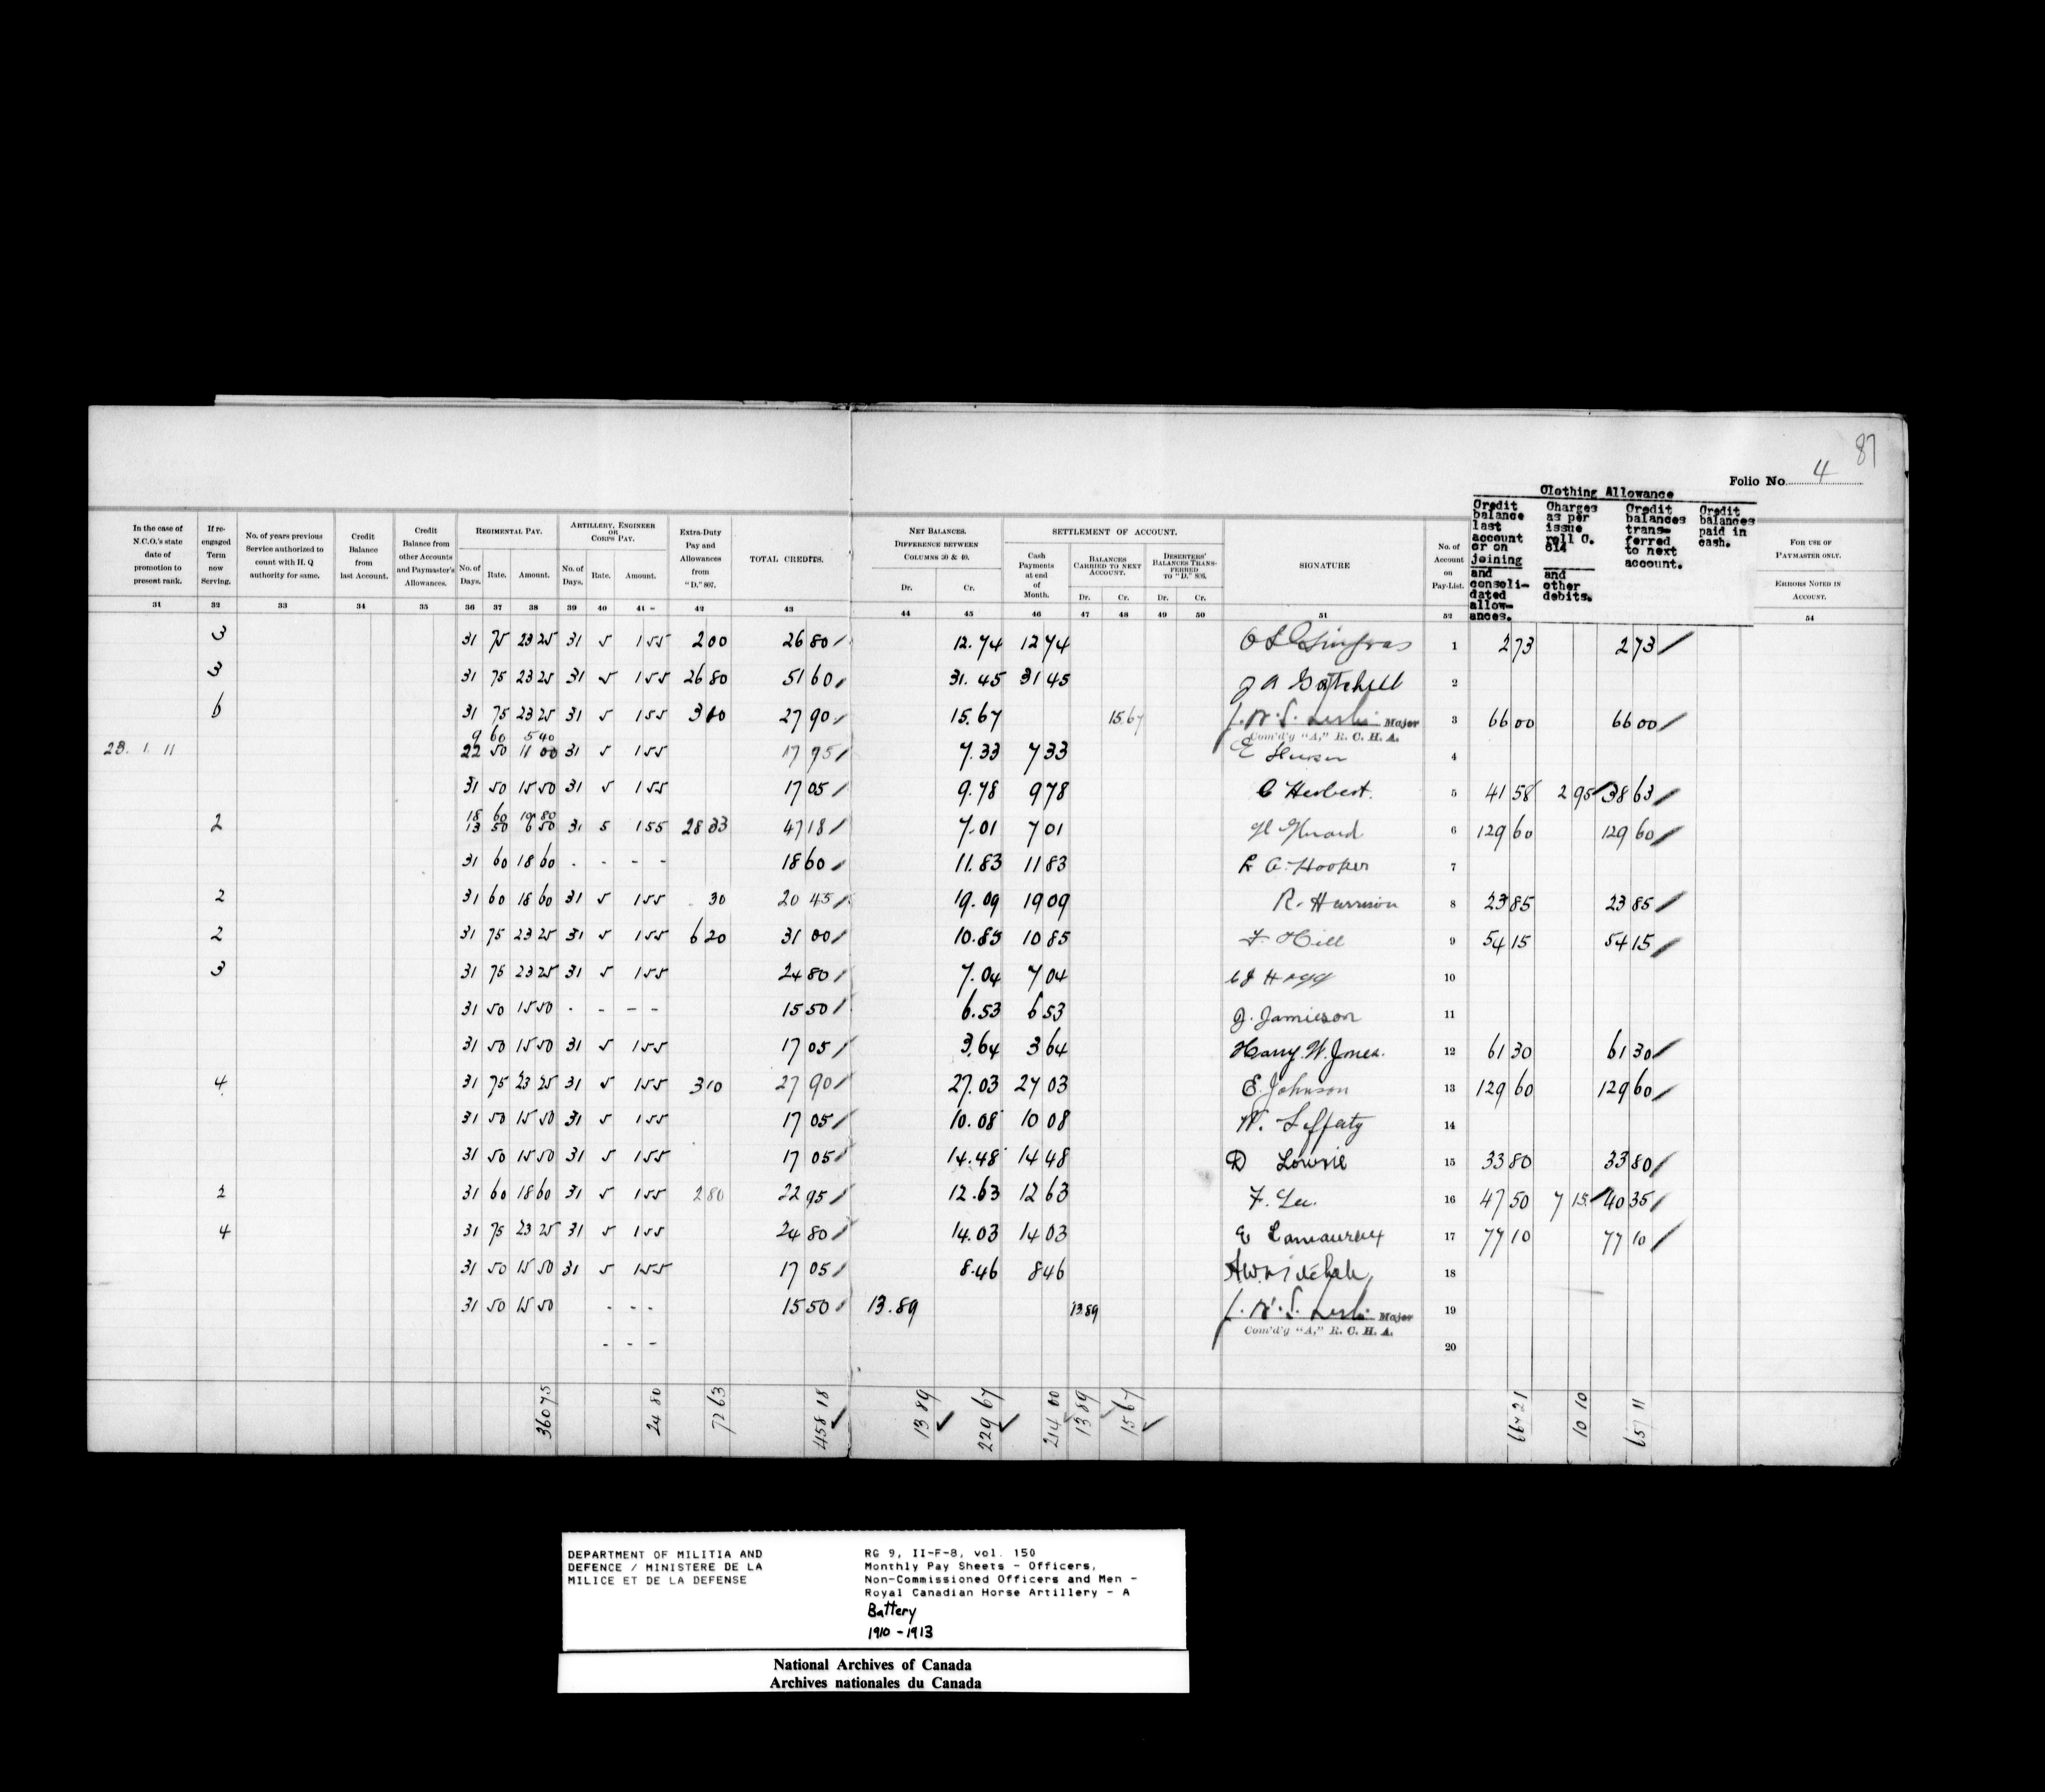 87
Folio No. 4
Clothing Allowance
In the case of N.C.O.'s state date of promotion to present rank.
If re-engaged Term now Serving.
No. of years previous Service authorized to count with H. Q authority for same.
Credit Balance from last Account.
Credit Balance from other Accounts and Paymaster's Allowances.
REGIMENTAL PAY.
No. of Days. Rate. Amount.
ARTILLERY, ENGINEER OR CORPS PAY.
No. of Days. Rate. Amount.
Extra-Duty Pay and Allowances from "D." 807.
TOTAL CREDITS.
NET BALANCES. DIFFERENCE BETWEEN COLUMNS 30 & 40.
Dr. Cr.
SETTLEMENT OF ACCOUNT.
Cash Payments at end of Month.
BALANCES CARRIED TO NEXT ACCOUNT.
Dr. Cr.
DESERTERS' BALANCES TRANSFERRED TO "D." 806.
Dr. Cr.
SIGNATURE
No. of Account on Pay-List.
Credit balance last account or on joining and consolidated allowances.
Charges as per issue roll C. 614 and other debits.
Credit balances transferred to next account.
Credit balances paid in cash.
FOR USE OF PAYMASTER ONLY.
ERRORS NOTED IN ACCOUNT.
31 32 33 34 35 36 37 38 39 40 41 42 43 44 45 46 47 48 49 50 51 52 54
3 31 75 23 25 31 5 1 55 2 00 26 80 12.74 12 74 1 2 73 2 73
3 31 75 23 25 31 5 1 55 26 80 51 60 31.45 31 45 J A Gatchell 2
6 31 75 23 25 31 5 1 55 3 10 27 90 15.67 15.67 Major 3 66 00 66 00
Com'd'g "A," R. C. H. A.
9 60 5 40
28. 1. 11 22 50 11 00 31 5 1 55 17 95 7.33 7 33 E 4
31 50 15 50 31 5 1 55 17 05 9.78 9 78 C Herbert. 5 41 58 2 95 38 63
18 60 10 80
2 13 50 6 50 31 5 1 55 28 33 47 18 7.01 7 01 6 129 60 129 60
31 60 18 60 . - - - 18 60 11.83 11 83 R C. Hooper 7
2 31 60 18 60 31 5 1 55 30 20 45 19.09 19 09 R. Harrison 8 23 85 23 85
2 31 75 23 25 31 5 1 55 6 20 31 00 10.85 10 85 F. Hill 9 54 15 54 15
3 31 75 23 25 31 5 1 55 24 80 7.04 7 04 Hogg 10
31 50 15 50 . - - - 15 50 6.53 6 53 J. Jamieson 11
31 50 15 50 31 5 1 55 17 05 3.64 3 64 Harry. W. Jones. 12 61 30 61 30
4 31 75 23 25 31 5 1 55 3 10 27 90 27.03 27 03 E. Johnson 13 129 60 129 60
31 50 15 50 31 5 1 55 17 05 10.08 10 08 W. Lefferty 14
31 50 15 50 31 5 1 55 17 05 14.48 14 48 D Lowrie 15 33 80 33 80
2 31 60 18 60 31 5 1 55 2 80 22 95 12.63 12 63 F. Lee. 16 47 50 7 15 40 35
4 31 75 23 25 31 5 1 55 24 80 14.03 14 03 E Lamoureux 17 77 10 77 10
31 50 15 50 31 5 1 55 17 05 8.46 8 46 18
31 50 15 50 - - - 15 50 13.89 13.89 Major 19
Com'd'g "A," R. C. H. A.
- - - 20
360 75 24 80 72 63 458 18 13 89 229 67 214 00 13 89 15 67 667 21 10 10 657 11
DEPARTMENT OF MILITIA AND
DEFENCE / MINISTERE DE LA
MILICE ET DE LA DEFENSE
RG 9, II-F-8, vol. 150
Monthly Pay Sheets - Officers,
Non-Commissioned Officers and Men -
Royal Canadian Horse Artillery - A
Battery
1910 - 1913
National Archives of Canada
Archives nationales du Canada